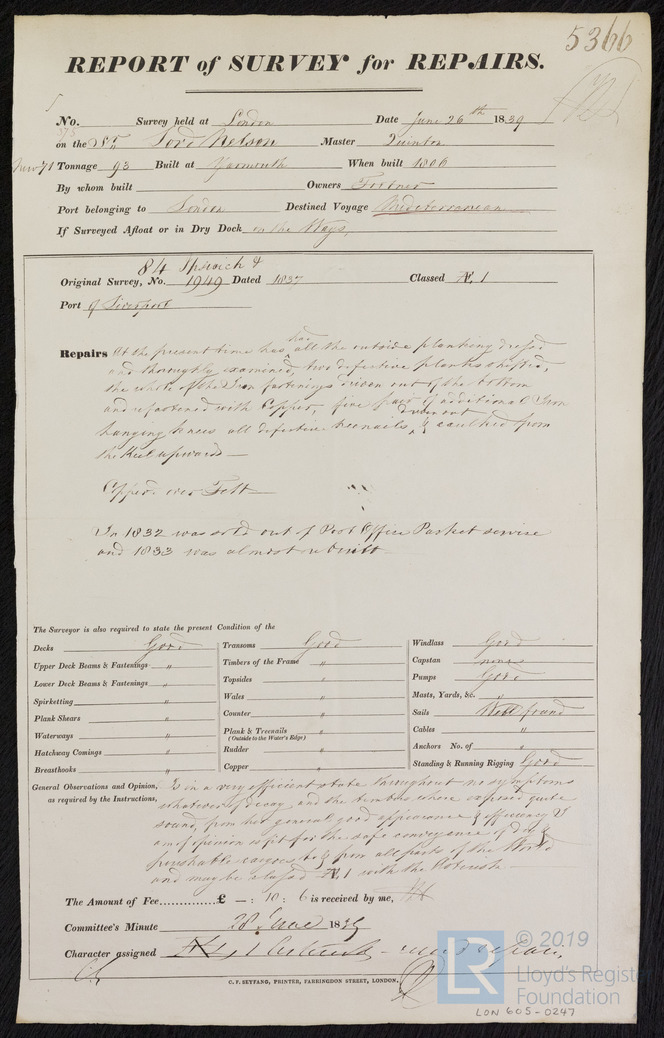 5366
REPORT of SURVEY for REPAIRS.
No. Survey held at London Date June 26th 1839
375
on the Sr. Lord Nelson Master Quinton
New 71 Tonnage 93 Built at Yarmouth When built 1806
By whom built Owners
Port belonging to London Destined Voyage Mediterranean
If Surveyed Afloat or in Dry Dock on the Ways,
84 Ipswich &
Original Survey, No. 1949 Dated 1837 Classed Æ 1
Port of Liverpool
Repairs At the present time has had all the outside planking dressed
and thoroughly examined, two defective planks shifted,
the whole of the Iron fastenings driven out of the bottom
and refastened with Copper, five pair of additional Iron
hanging knees all defective treenails driven out & caulked from
the Keel upwards
Copper over Felt
In 1832 was sold out of Post Office Packet service
and 1833 was almost rebuilt
The Surveyor is also required to state the present Condition of the
Decks Good
Upper Deck Beams & Fastenings "
Lower Deck Beams & Fastenings "
Spirketting "
Plank Shears "
Waterways "
Hatchway Comings "
Breasthooks "
Transoms Good
Timbers of the Frame "
Topsides "
Wales "
Counter "
Plank & Treenails "
(Outside to the Water's Edge)
Rudder "
Copper "
Windlass Good
Capstan none
Pumps Good
Masts, Yards, &c. "
Sails Well found
Cables "
Anchors No. of "
Standing & Running Rigging Good
General Observations and Opinion, Is in a very efficient state throughout no symptoms
as required by the Instructions, whatever of decay, and the timbers where exposed quite
sound, from her general good appearance & efficiency I
am of opinion is fit for the safe conveyance of dry &
perishable cargoes to & from all parts of the World
and may be classed Æ 1 with the Asterisk
The Amount of Fee £ — : 10 : 6 is received by me,
Committee's Minute 28 June 1839
Character assigned
C. F. SEYFANG, PRINTER, FARRINGDON STREET, LONDON.
LR © 2019
Lloyd's Register
Foundation
LON 605-0247